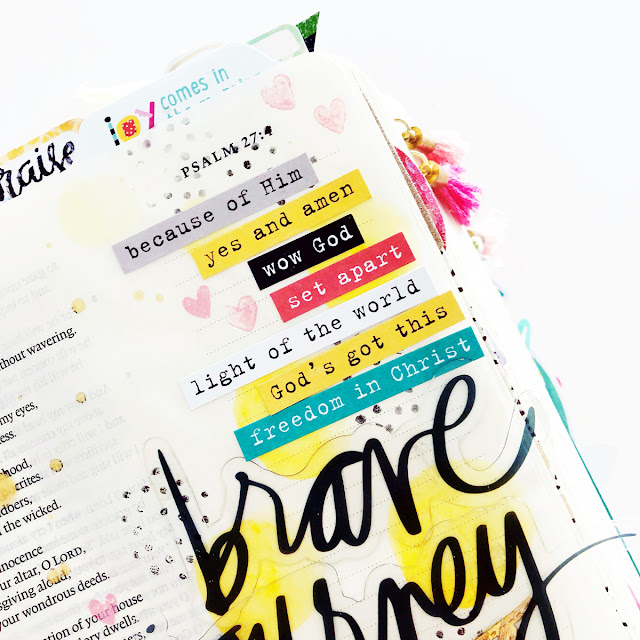 joy comes in
raise
PSALM 27:4
because of Him
yes and amen
wow God
set apart
light of the world
God's got this
freedom in Christ
brave
journey
without wavering.
my eyes,
hood,
crites.
the wicked.
nocence
our altar, O LORD,
sgiving aloud,
your wondrous deeds.
tion of your house
ory dwells.